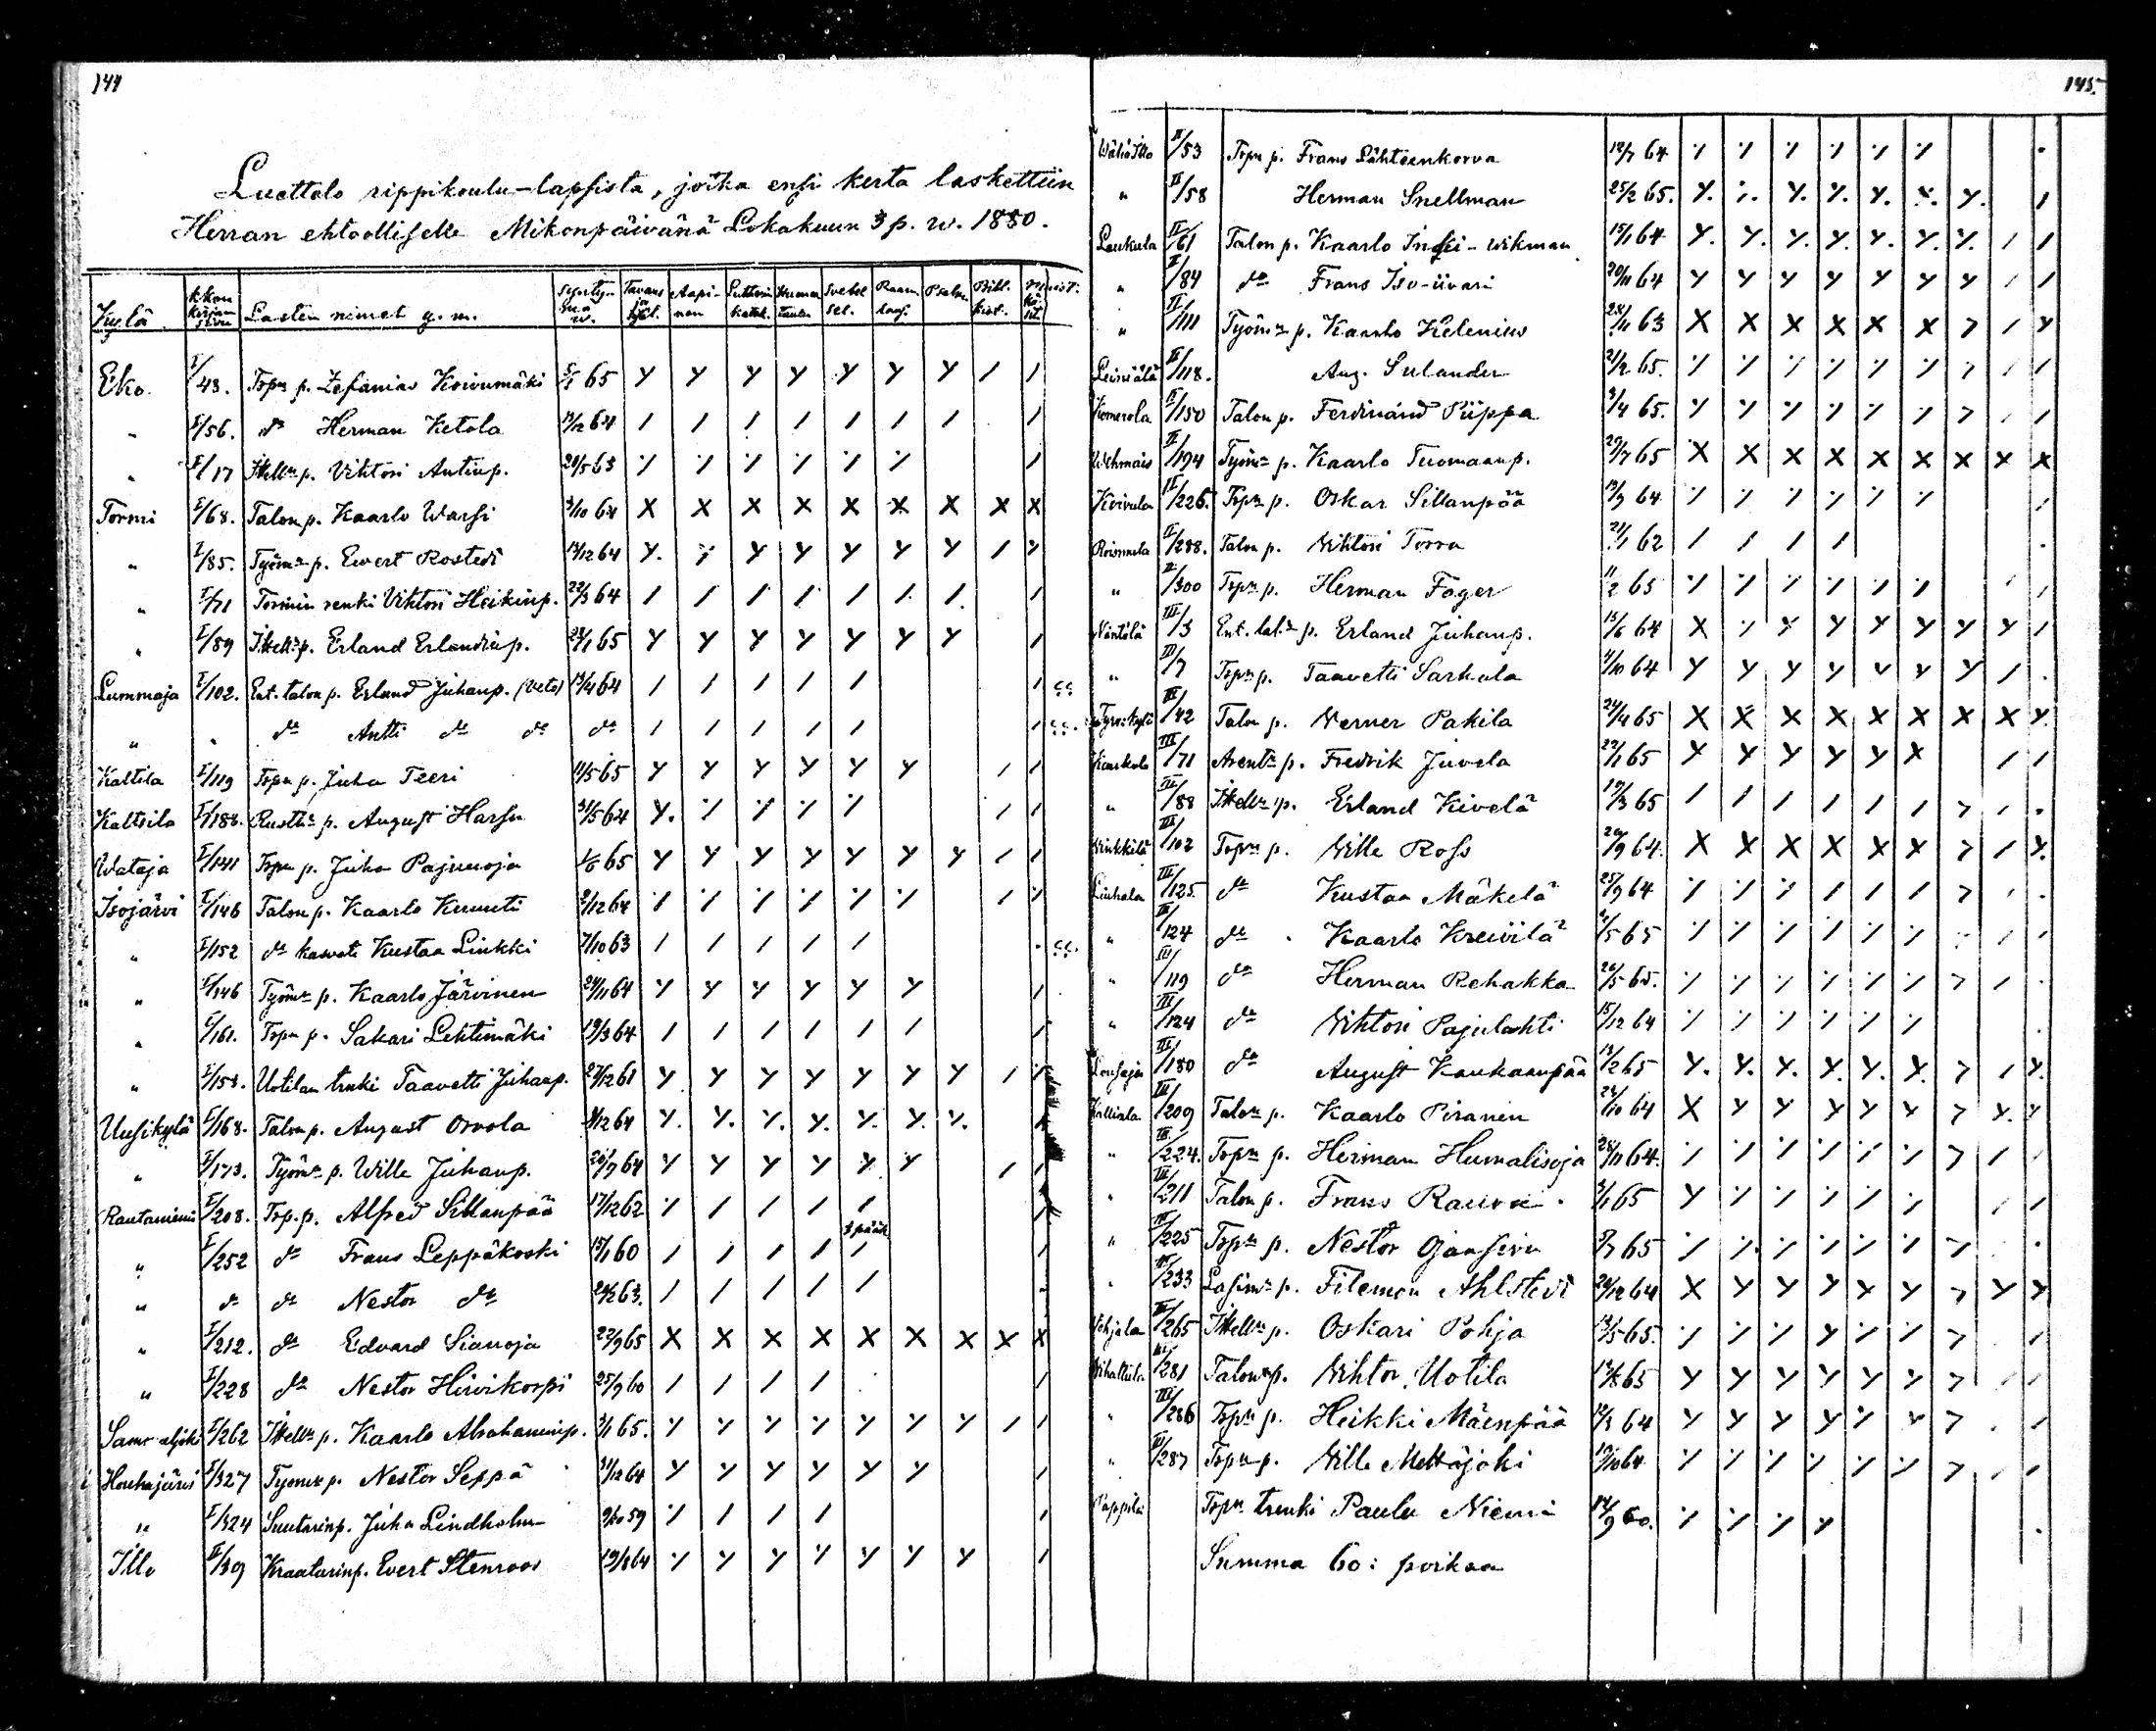 144
Luettelo rippikoulu-lapsista, jotka ensi kerta laskettiin
Herran ehtoolliselle Mikonpäivänä Lokakuun 3 p. w. 1880.
Kylä k.kon kirjan sivu Lasten nimet y. m. Synty- mä w. Tavaus ja sisäl. Aapi- nen Lutherin katek. Huonen taulu Svebel sel. Raam. laus. Psalm. Bibl. hist.
Eko I/43. Torp p. Zefanias Koivumäki 5/1 65
" I/56. do Herman Ketola 64
" I/17 Itsell p. Vihtori Antinp. 63
Tormi I/68. Talon p. Kaarlo Warsi 3/10 64
" I/85. Työm p. Ewert Rostedt 13/12 64
" I/71 Tormin renki Vihtori Heikinp. 22/3 64
" I/89 Itsell p. Erland Erlandinp. 23/1 65
Lummaja I/102. Ent. talon p. Erland Juhanp. (Veto) 13/4 64
" " do Antti do do do
Kaltila I/119 Torp p. Juha Teeri 11/5 65
Kaltsila I/188. Rusth p. August Harsu 31/5 64
Wataja I/141 Torp p. Juha Pajunoja 65
Isojärvi I/146 Talon p. Kaarlo Kuuuti 9/12 64
" I/152 do kasvati Kustaa Linkki 7/10 63
" I/146 Työm p. Kaarlo Järvinen 24/11 64
" I/161. Torp p. Sakari Lehtimäki 19/3 64
" I/153. Uotilan trenki Taavetti Juhanp. 27/12 61
Uusikylä I/168. Talon p. August Orvola 64
" I/173. Työm p. Wille Juhanp. 26/7 64
Rautaniemi I/208. Torp. p. Alfred Sillanpää 17/12 62
" I/252 do Frans Leppäkoski 15/1 60
" do do Nestor do 63.
" I/212. do Edvard Sianoja 22/9 65
" I/228 do Nestor Hirvikorpi 25/9 60
Sammaljoki I/262 Itsell p. Kaarlo Abrahaminp. 3/1 65.
Houhajärvi I/327 Työm p. Nestor Seppä 31/12 64
" I/324 Suutarinp. Juha Lindholm 9/10 59
Illo II/39 Kraatarinp. Evert Stenroos 19/8 64
145.
II/53 Torp p. Frans Lähteenkorva 12/7 64
" II/58 Herman Snellman 25/2 65.
Leukula II/61 Talon p. Kaarlo Inki-Wikman 15/1 64
" II/84 do Frans Iso-iivari 20/11 64
" II/111 Työm p. Kaarlo Helenius 28/11 63
Leiniälä II/118. Aug. Sulander 21/2 65.
Komerola II/150 Talon p. Ferdinand Piippa 3/4 65.
Wehmais II/194 Työm p. Kaarlo Tuomaanp. 29/7 65
Koivula II/226. Torp p. Oskar Sillanpää 13/9 64
Roismala II/288. Talon p. Wihtori Torra 21/1 62
" II/300 Torp p. Herman Fager 11/2 65
Näntölä III/3 Ent. tal. p. Erland Juhanp. 15/6 64
" III/7 Torp p. Taavetti Sarkala 4/10 64
Tyrvikylä III/42 Talon p. Werner Pakila 24/4 65
Kaukola III/71 Arent p. Fredrik Juvela 29/1 65
" III/88 Itsell p. Erland Kivelä 19/3 65
Winkkilä III/102 Torp p. Wille Ross 20/9 64.
Liuhala III/125 do Kustaa Mäkelä 25/9 64
" III/124 do Kaarlo Kreivilä 65
" III/119 do Herman Rehakka 26/5 65.
" III/124 do Wihtori Pajulahti 15/12 64
III/180 do August Kaukaanpää 13/2 65
Kalliala III/209 Talon p. Kaarlo Piranen 24/10 64
" III/224. Torp p. Herman Humalisoja 28/11 64.
" III/211 Talon p. Frans Rauvoi 3/1 65
" III/225 Torp p. Nestor Ojansivu 65
" III/233 Lasim p. Filemon Ahlstedt 20/12 64
III/265 Itsell p. Oskari Pohja 13/5 65.
III/281 Talon p. Wihtor Uotila 65
" III/286 Torp p. Heikki Mäenpää 12/3 64
" III/287 Torp p. Wille Mettäjoki 19/10 64
Pappila Torp trenki Paulu Niemi 14/9 60.
Summa 60: poikaa